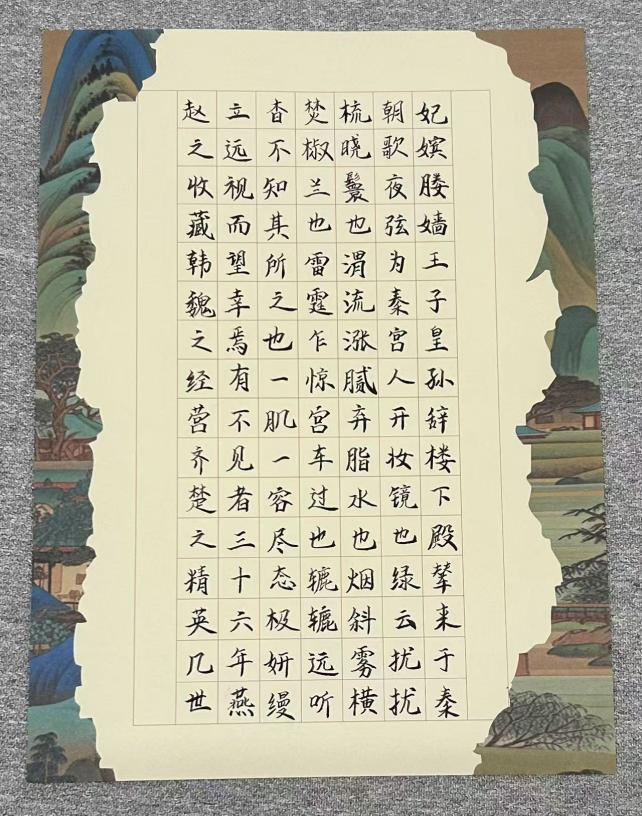 妃嫔媵嫱王子皇孙辞楼下殿辇来于秦
朝歌夜弦为秦宫人开妆镜也绿云扰扰
梳晓鬟也渭流涨腻弃脂水也烟斜雾横
焚椒兰也雷霆乍惊宫车过也辘辘远听
杳不知其所之也一肌一容尽态极妍缦
立远视而望幸焉有不见者三十六年燕
赵之收藏韩魏之经营齐楚之精英几世